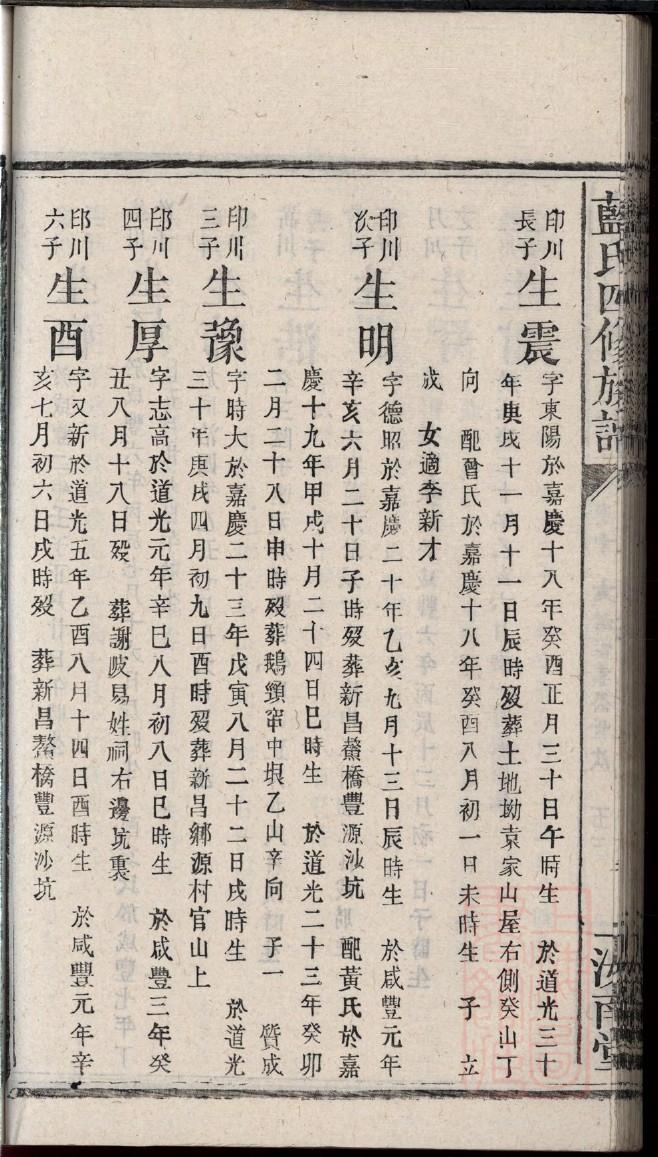 藍氏四修族譜
汝南堂
印川長子 生震
字東陽於嘉慶十八年癸酉正月三十日午時生 於道光三十
年庚戌十一月十一日辰時歿葬土地坳袁家山屋右側癸山丁
向 配曾氏於嘉慶十八年癸酉八月初一日未時生 子 立
成 女適李新才
印川次子 生明
字德照於嘉慶二十年乙亥九月十三日辰時生 於咸豐元年
辛亥六月二十日子時歿葬新昌鰲橋豐源沙坑 配黃氏於嘉
慶十九年甲戌十月二十四日巳時生 於道光二十三年癸卯
二月二十八日申時歿葬鵝頸窜中垠乙山辛向 子一 質成
印川三子 生豫
字時大於嘉慶二十三年戊寅八月二十二日戌時生 於道光
三十年庚戌四月初九日酉時歿葬新昌鄉源村官山上
印川四子 生厚
字志高於道光元年辛巳八月初八日巳時生 於咸豐三年癸
丑八月十八日歿 葬謝陂易姓祠右邊坑裏
印川六子 生酉
字又新於道光五年乙酉八月十四日酉時生 於咸豐元年辛
亥七月初六日戌時歿 葬新昌鰲橋豐源沙坑